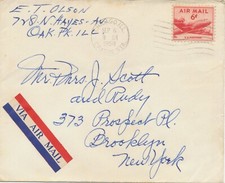 E. T. OLSON
728 N. HAYES-AV
OAK PK. ILL
AIR MAIL
6¢
Mr. & Mrs. J. Scott
and Rudy
373 Prospect Pl.
Brooklyn
New York
VIA AIR MAIL